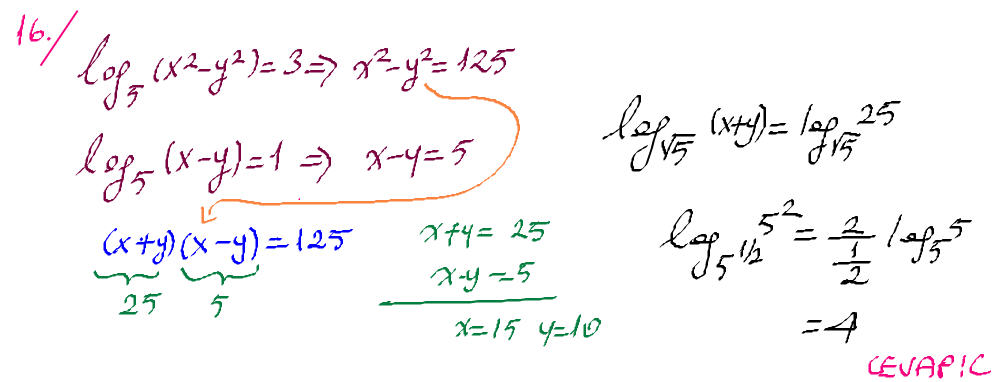 16./
log₅(x²-y²)=3⇒ x²-y²=125
log₅(x-y)=1 ⇒ x-y=5
(x+y)(x-y)=125
25 5
x+y= 25
x-y=5
x=15 y=10
log_√5 (x+y)= log_√5 25
log_5^1/2 5² = 2/(1/2) log₅5
=4
CEVAP!C